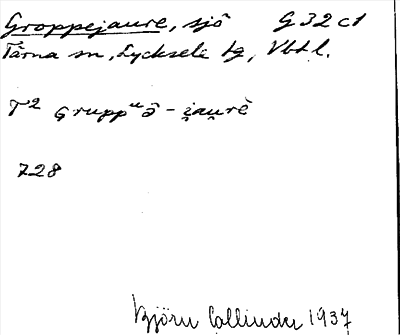 Groppejaure, sjö G 32 c1
Tärna sn, Lycksele lg, Vbtl.
T² Gruppᵘə̂ - i̯au̯rē̆
728
Björn Collinder 1937